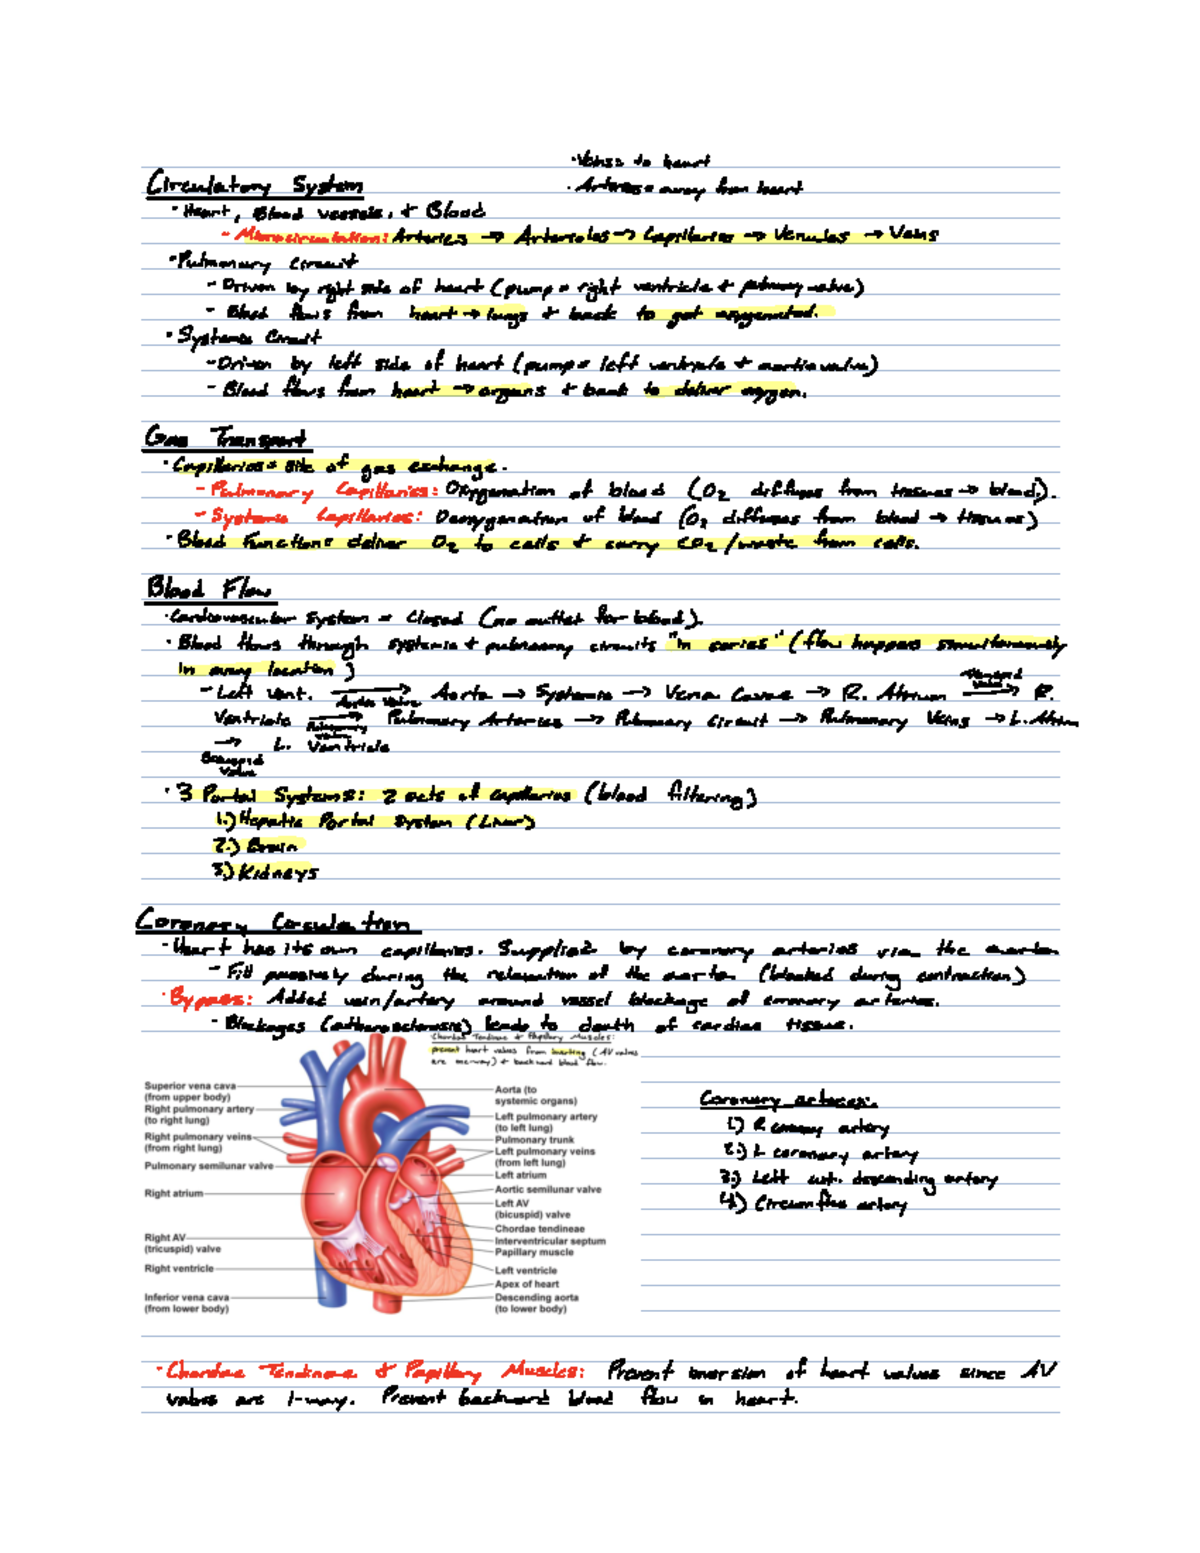 ·Veins = to heart
Circulatory System
·Arteries = away from heart
·Heart, Blood vessels, + Blood
- Microcirculation: Arteries → Arterioles → Capillaries → Venules → Veins
·Pulmonary Circuit
- Driven by right side of heart (pump = right ventricle + pulmonary valve)
- Blood flows from heart → lungs + back to get oxygenated.
·Systemic Circuit
- Driven by left side of heart (pump = left ventricle + aortic valve)
- Blood flows from heart → organs + back to deliver oxygen.
Gas Transport
·Capillaries = site of gas exchange.
- Pulmonary Capillaries: Oxygenation of blood (O2 diffuses from tissues → blood).
- Systemic Capillaries: Deoxygenation of blood (O2 diffuses from blood → tissues)
·Blood Functions deliver O2 to cells + carry CO2/waste from cells.
Blood Flow
·Cardiovascular system = Closed (no outlet for blood).
·Blood flows through systemic + pulmonary circuits "in series" (flow happens simultaneously
in every location)
- Left vent. → Aortic Valve Aorta → Systemic → Vena Cavae → R. Atrium → Tricuspid Valve R.
Ventricle → Pulmonary Valve Pulmonary Arteries → Pulmonary Circuit → Pulmonary Veins → L. Atrium
→ Bicuspid Valve L. Ventricle
·3 Portal Systems: 2 sets of capillaries (blood filtering)
1.) Hepatic Portal System (Liver)
2.) Brain
3.) Kidneys
Coronary Circulation
·Heart has its own capillaries. Supplied by coronary arteries via the aorta
- Fill passively during the relaxation of the aorta (blocked during contraction)
·Bypass: Added vein/artery around vessel blockage of coronary arteries.
- Blockages (atherosclerosis) leads to death of cardiac tissue.
Chordae Tendinae + Papillary Muscles:
prevent heart valves from inverting (AV valves
are one-way) + backward blood flow.
Superior vena cava
(from upper body)
Right pulmonary artery
(to right lung)
Right pulmonary veins
(from right lung)
Pulmonary semilunar valve
Right atrium
Right AV
(tricuspid) valve
Right ventricle
Inferior vena cava
(from lower body)
Aorta (to
systemic organs)
Left pulmonary artery
(to left lung)
Pulmonary trunk
Left pulmonary veins
(from left lung)
Left atrium
Aortic semilunar valve
Left AV
(bicuspid) valve
Chordae tendineae
Interventricular septum
Papillary muscle
Left ventricle
Apex of heart
Descending aorta
(to lower body)
Coronary arteries:
1.) R coronary artery
2.) L coronary artery
3.) Left ant. descending artery
4.) Circumflex artery
·Chordae Tendinae + Papillary Muscles: Prevent inversion of heart valves since AV
valves are 1-way. Prevent backward blood flow in heart.